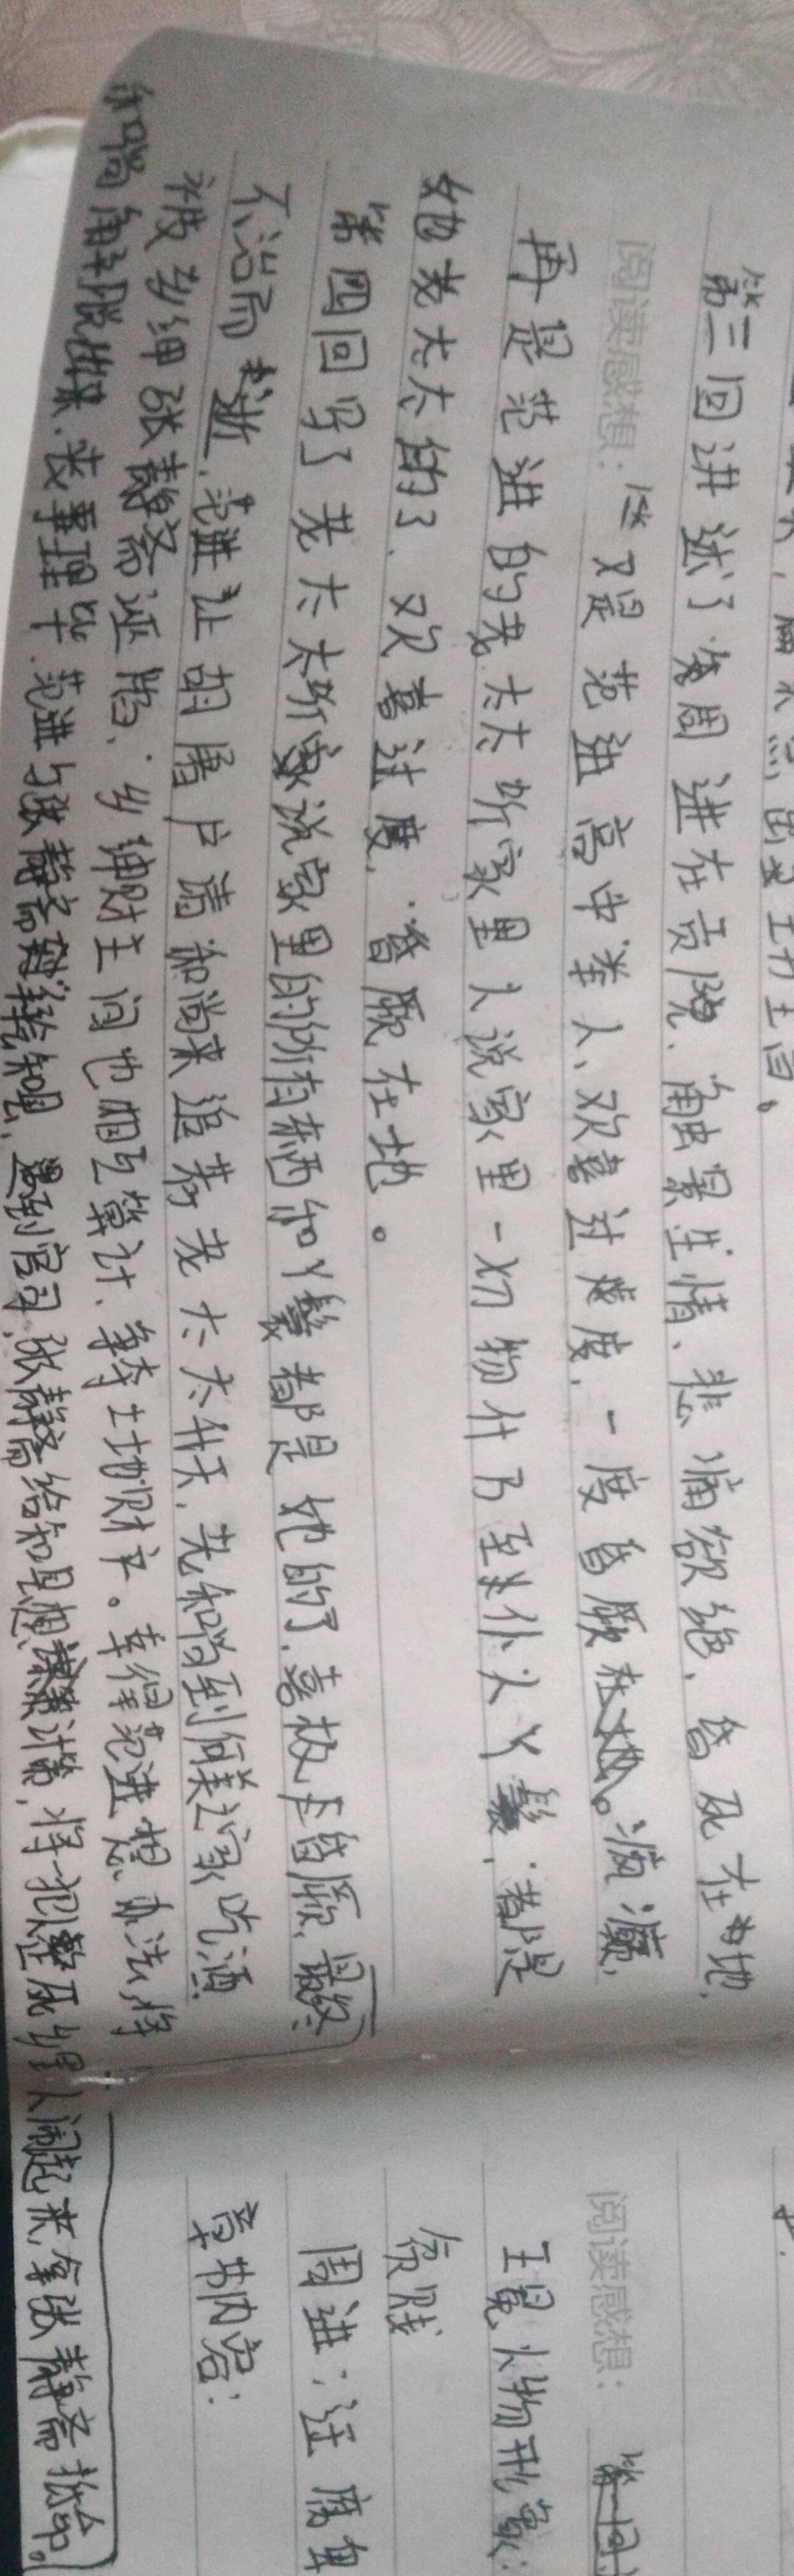 第三回讲述了周进在贡院、触景生情、悲痛欲绝、昏死在地,
阅读感想:又是范进高中举人、欢喜过度,一度昏厥、疯癫,
再是范进的老太太听家里人说家里一切物什乃至仆人丫鬟,都是
她老太太的了、欢喜过度,昏厥在地。
第四回写了老太太听家说家里的所有东西和丫鬟都是她的了,喜极后昏厥,最终
不治而逝,范进让胡屠户请和尚来追荐老太太升天,先和尚到何美之家吃酒
被乡绅张静斋诬陷,乡绅财主间也相互算计,争夺土地财产。幸得范进想办法,将
和尚解脱出来,丧事理毕,范进与张静斋知县,遇到官司,张静斋给知县想计策,将犯人整死,人闹起来,拿张静斋抵命。
阅读感想:第一回
王冕人物形象:
贫贱
周进:迂腐
章书内容: